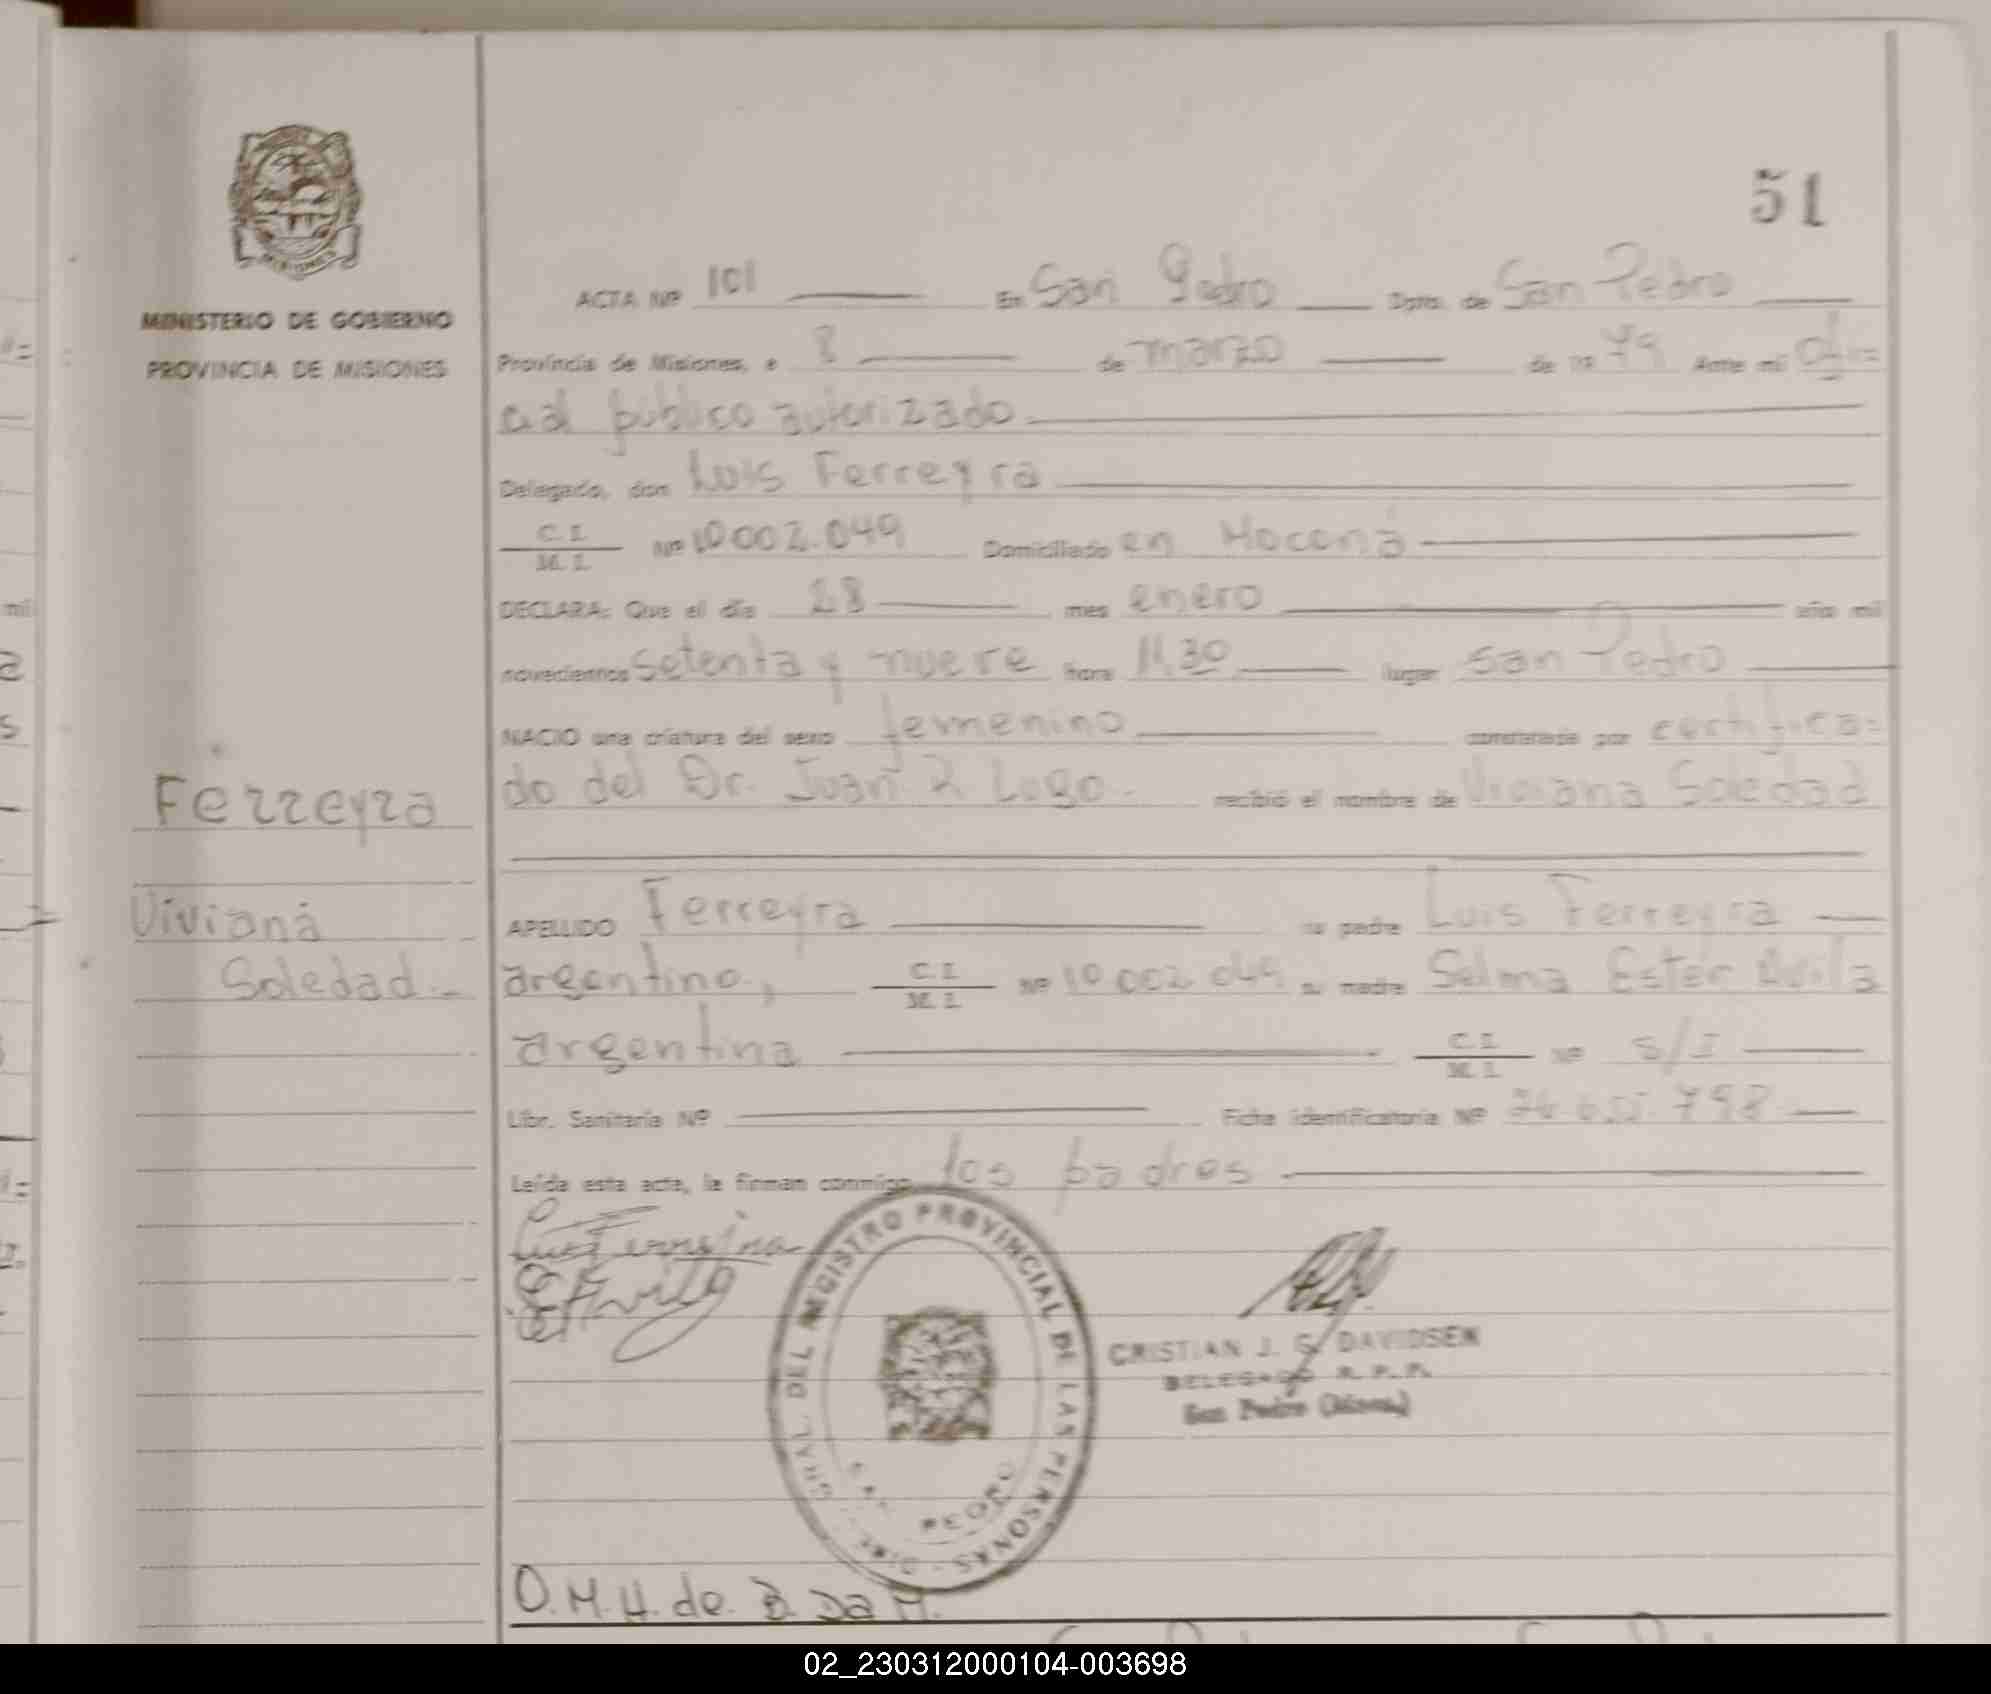 51
MINISTERIO DE GOBIERNO
PROVINCIA DE MISIONES
ACTA Nº 101 En San Pedro Dpto. de San Pedro
Provincia de Misiones, a 8 de marzo de 19 79 Ante mi Ofi=
cial público autorizado
Delegado, don Luis Ferreyra
C. I.
M. I. Nº 10002.049 Domiciliado en Moconá
DECLARA: Que el día 28 mes enero año mil
novecientos setenta y nueve hora 11.30 lugar San Pedro
NACIO una criatura del sexo femenino constatada por certifica=
do del Dr. Juan R Lugo. recibió el nombre de Viviana Soledad
Ferreyra
Viviana
Soledad.-
APELLIDO Ferreyra su padre Luis Ferreyra
argentino, C. I.
M. I. Nº 10 002 049 su madre Selma Ester Avila
argentina C. I.
M. I. Nº S/I
Libr. Sanitaria Nº Ficha identificatoria Nº 798
Leída esta acta, la firman conmigo los padres
DIRE. GRAL. DEL REGISTRO PROVINCIAL DE LAS PERSONAS
SAN PEDRO
CRISTIAN J. S. DAVIDSEN
DELEGADO R. P. P.
San Pedro (Misiones)
O.M.H. de B. DaM.
02_230312000104-003698